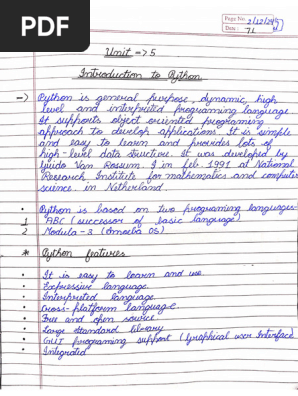 PDF
Page No.
Date:
Unit => 5
Introduction to Python
-> Python is general purpose, dynamic, high
level and interpreted programing language.
It supports object oriented programing
approach to develop applications. It is simple
and easy to learn and provides lots of
high-level data structure. It was developed by
Guido Van Rossum in feb. 1991 at National
Research Institute for mathematics and computer
science in Netherland.
• Python is based on two programing languages:-
1 ABC (successor of basic language)
2 Modula-3 (Amoeba OS)
* Python features
• It is easy to learn and use
• Expressive language
• Interpreted language
• Cross-platform language
• Free and open source.
• Large Standard library
• GUI programing support (Graphical user Interface)
• Integrated